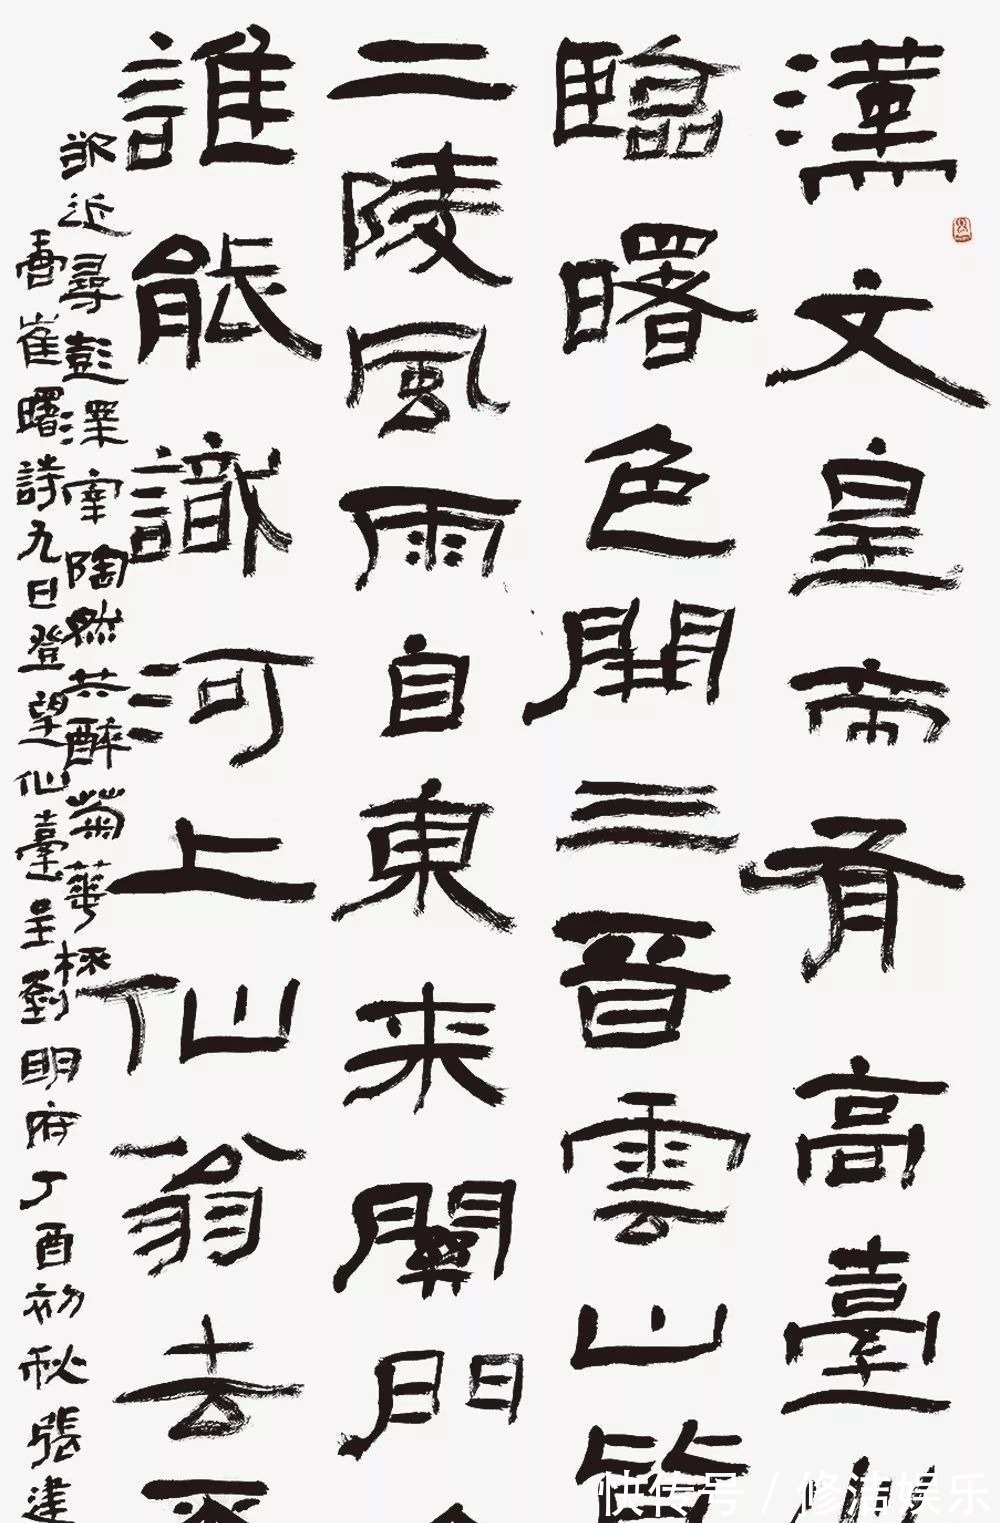 漢文皇帝有高臺
臨曙色開三晉雲山皆
二陵風雨自東来關門
誰能識河上仙翁去不
欲近尋彭澤宰陶然共醉菊華杯
唐崔曙詩九日登望仙臺呈劉明府丁酉初秋張建
快传号 / 修洁娱乐